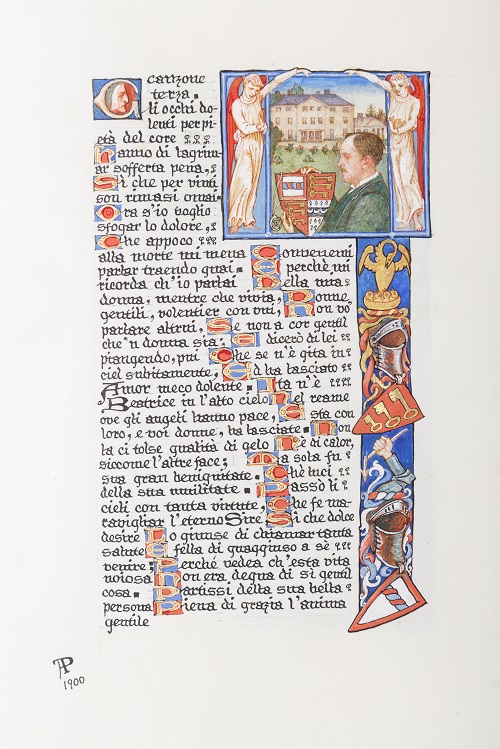 Canzone
terza.
Gli occhi do-
lenti per pi-
età del core
Hanno di lagrim-
ar sofferta pena,
Sì che per vinti
son rimasi omai.
Ora s'io voglio
sfogar lo dolore,
Che appoco
alla morte mi mena Convenemi
parlar traendo guai. E perchè mi
ricorda ch'io parlai Della mia
donna, mentre che vivia, Donne
gentili, volentier con vui, Non vò
parlare altrui, Se non a cor gentil
che 'n donna sia. E dicerò di lei
piangendo, pui Che se n'è gita in
ciel subitamente, Ed ha lasciato
Amor meco dolente. Ita n'è
Beatrice in l'alto cielo Nel reame
ove gli angeli hanno pace, E sta con
loro, e voi donne, ha lasciate. Non
la ci tolse qualità di gelo Nè di calor,
siccome l'altre face; Ma sola fu
sua gran benignitate. Chè luci
della sua umilitate. Passò li
cieli con tanta virtute, Che fe ma-
ravigliar l'eterno Sire Sì che dolce
desire Lo giunse di chiamar tanta
salute E fella di quaggiuso a sè
venire; Perchè vedea ch'esta vita
noiosa Non era degna di sì gentil
cosa. Partissi della sua bella
persona Piena di grazia l'anima
gentile
AP
1900